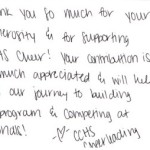 nk you so much for your
erosity & for supporting
HS Cheer! Your contribution is
much appreciated & will help
our journey to building
program & competing at
onals!
-♡- CCHS
cheerleading